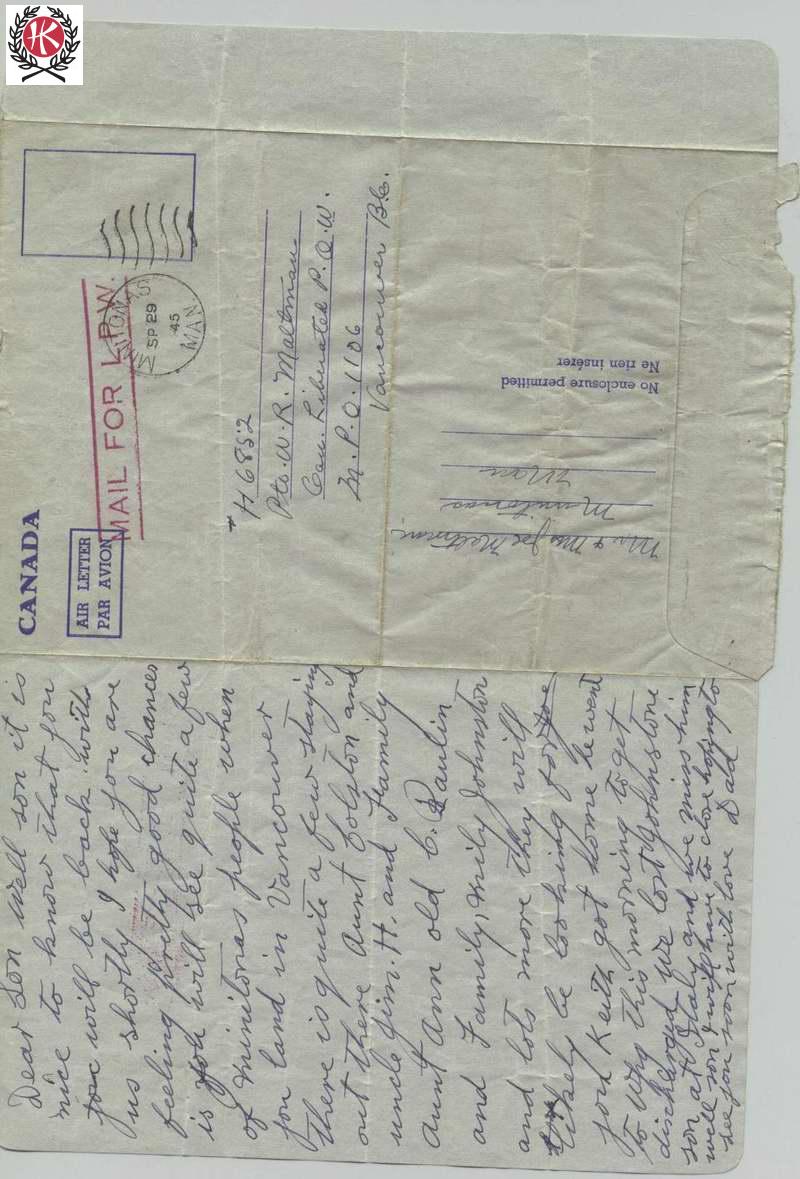 HK
CANADA
AIR LETTER
PAR AVION
MAIL FOR L.P.W.
MINITONAS
SP 29
45
MAN
H 6852
Pte. W. R. Maltman
Can. Liberated P.O.W.
M.P.O. 1106
Vancouver B.C.
Mr & Mrs Joe Maltman
Minitonas
Man
No enclosure permitted
Ne rien insérer
Dear Son Well son it is
nice to know that you
you will be back with
us shortly I hope you are
feeling pretty good chances
is you will see quite a few
of minitonas people when
you land in Vancouver
there is quite a few staying
out there Aunt Colston and
uncle Jim. H. and Family
Aunt Ann old C. Paulin
and Family, mily Johnston
and lots more they will
likely be looking for
you Keith got home he went
to Wpg this morning to get
discharged we lost Johnstone
son at Italy and we miss him
well son I will have to close hoping to
see you soon with love Dad